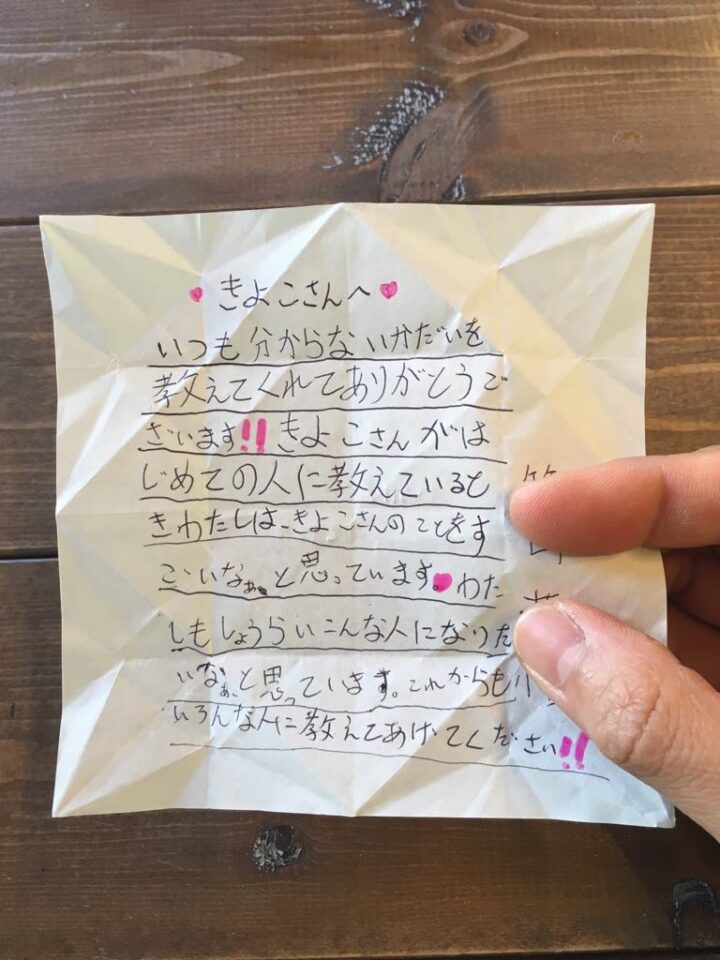 きよこさんへ
いつも分からないかだいを
教えてくれてありがとうご
ざいます!!きよこさんがは
じめての人に教えていると
きわたしは、きよこさんのことをす
ごいなぁ。と思っています。わた
しもしょうらいこんな人になりた
いなぁ、と思っています。これからも
いろんな人に教えてあげてください!!